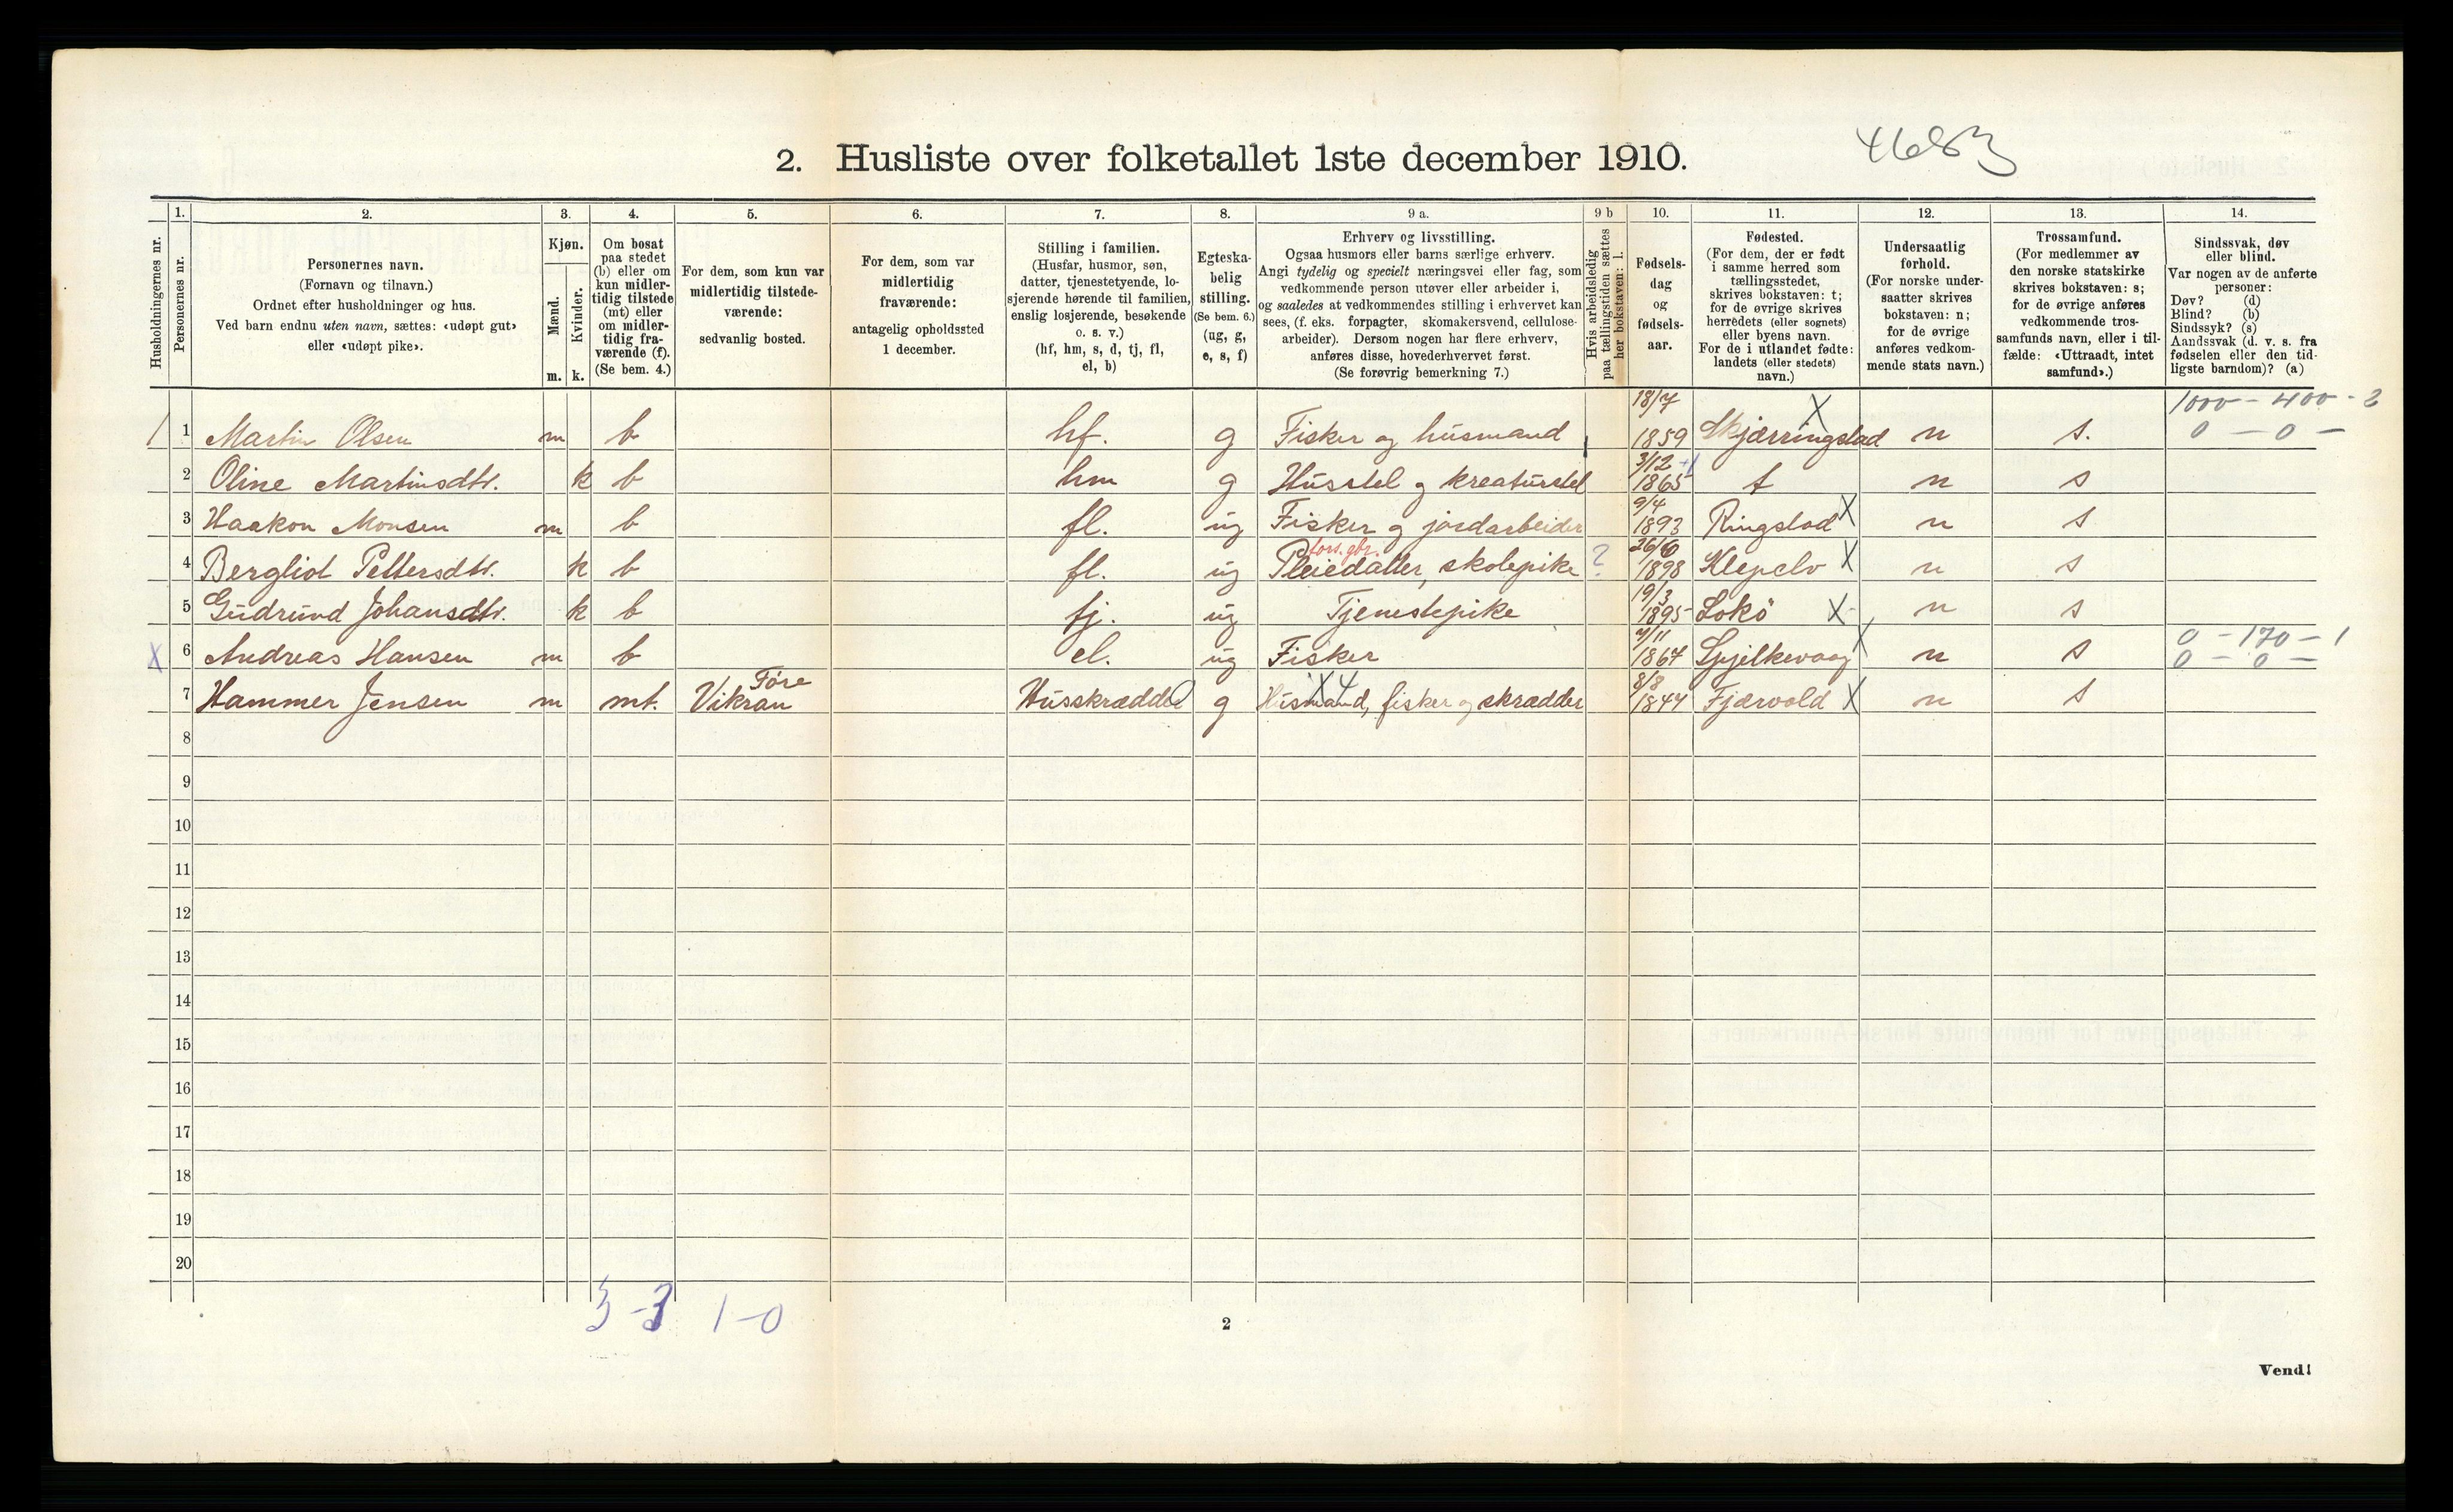 4683
2. Husliste over folketallet 1ste december 1910.
Husholdningernes nr.
1. Personernes nr.
2. Personernes navn.
(Fornavn og tilnavn.)
Ordnet efter husholdninger og hus.
Ved barn endnu uten navn, sættes: «udøpt gut»
eller «udøpt pike».
3. Kjøn.
Mænd. m.
Kvinder. k.
4. Om bosat
paa stedet
(b) eller om
kun midler-
tidig tilstede
(mt) eller
om midler-
tidig fra-
værende (f).
(Se bem. 4.)
5. For dem, som kun var
midlertidig tilstede-
værende:
sedvanlig bosted.
6. For dem, som var
midlertidig
fraværende:
antagelig opholdssted
1 december.
7. Stilling i familien.
(Husfar, husmor, søn,
datter, tjenestetyende, lo-
sjerende hørende til familien,
enslig losjerende, besøkende
o. s. v.)
(hf, hm, s, d, tj, fl,
el, b)
8. Egteska-
belig
stilling.
(Se bem. 6.)
(ug, g,
e, s, f)
9 a. Erhverv og livsstilling.
Ogsaa husmors eller barns særlige erhverv.
Angi tydelig og specielt næringsvei eller fag, som
vedkommende person utøver eller arbeider i,
og saaledes at vedkommendes stilling i erhvervet kan
sees, (f. eks. forpagter, skomakersvend, cellulose-
arbeider). Dersom nogen har flere erhverv,
anføres disse, hovederhvervet først.
(Se forøvrig bemerkning 7.)
9 b Hvis arbeidsledig
paa tællingstiden sættes
her bokstaven: l.
10. Fødsels-
dag
og
fødsels-
aar.
11. Fødested.
(For dem, der er født
i samme herred som
tællingsstedet,
skrives bokstaven: t;
for de øvrige skrives
herredets (eller sognets)
eller byens navn.
For de i utlandet fødte:
landets (eller stedets)
navn.)
12. Undersaatlig
forhold.
(For norske under-
saatter skrives
bokstaven: n;
for de øvrige
anføres vedkom-
mende stats navn.)
13. Trossamfund.
(For medlemmer av
den norske statskirke
skrives bokstaven: s;
for de øvrige anføres
vedkommende tros-
samfunds navn, eller i til-
fælde: «Uttraadt, intet
samfund».)
14. Sindssvak, døv
eller blind.
Var nogen av de anførte
personer:
Døv? (d)
Blind? (b)
Sindssyk? (s)
Aandssvak (d. v. s. fra
fødselen eller den tid-
ligste barndom)? (a)
1 1 Martin Olsen m b hf. g Fisker og husmand 18/7 1859 Skjærringstad X n s. 1000 - 400 - 2 0 - 0 -
2 Oline Martinsdtr. k b hm g Husstel g kreaturstel 3/12 1865 t n s
3 Haakon Monsen m b fl. ug Fisker g jordarbeider 9/4 1893 Ringstad X n s
4 Bergliot Pettersdtr. k b fl. ug fors. gbr. Pleiedatter, skolepike ? 1898 Klepelv X n s
5 Gudrund Johansdtr. k b tj. ug Tjenestepike 19/3 1895 Lokö X n s
X 6 Andreas Hansen m b el. ug Fisker 7/11 1864 Spjelkevaag X n s 0 - 170 - 1 0 - 0 -
7 Hammer Jensen m mt. Vikran Töre Husskrædder g Husmand, fisker og skrædder X 4 8/8 1844 Fjærvold X n s
8
9
10
11
12
13
14
15
16
17
18
19
20
3 - 3 1 - 0
2
Vend!